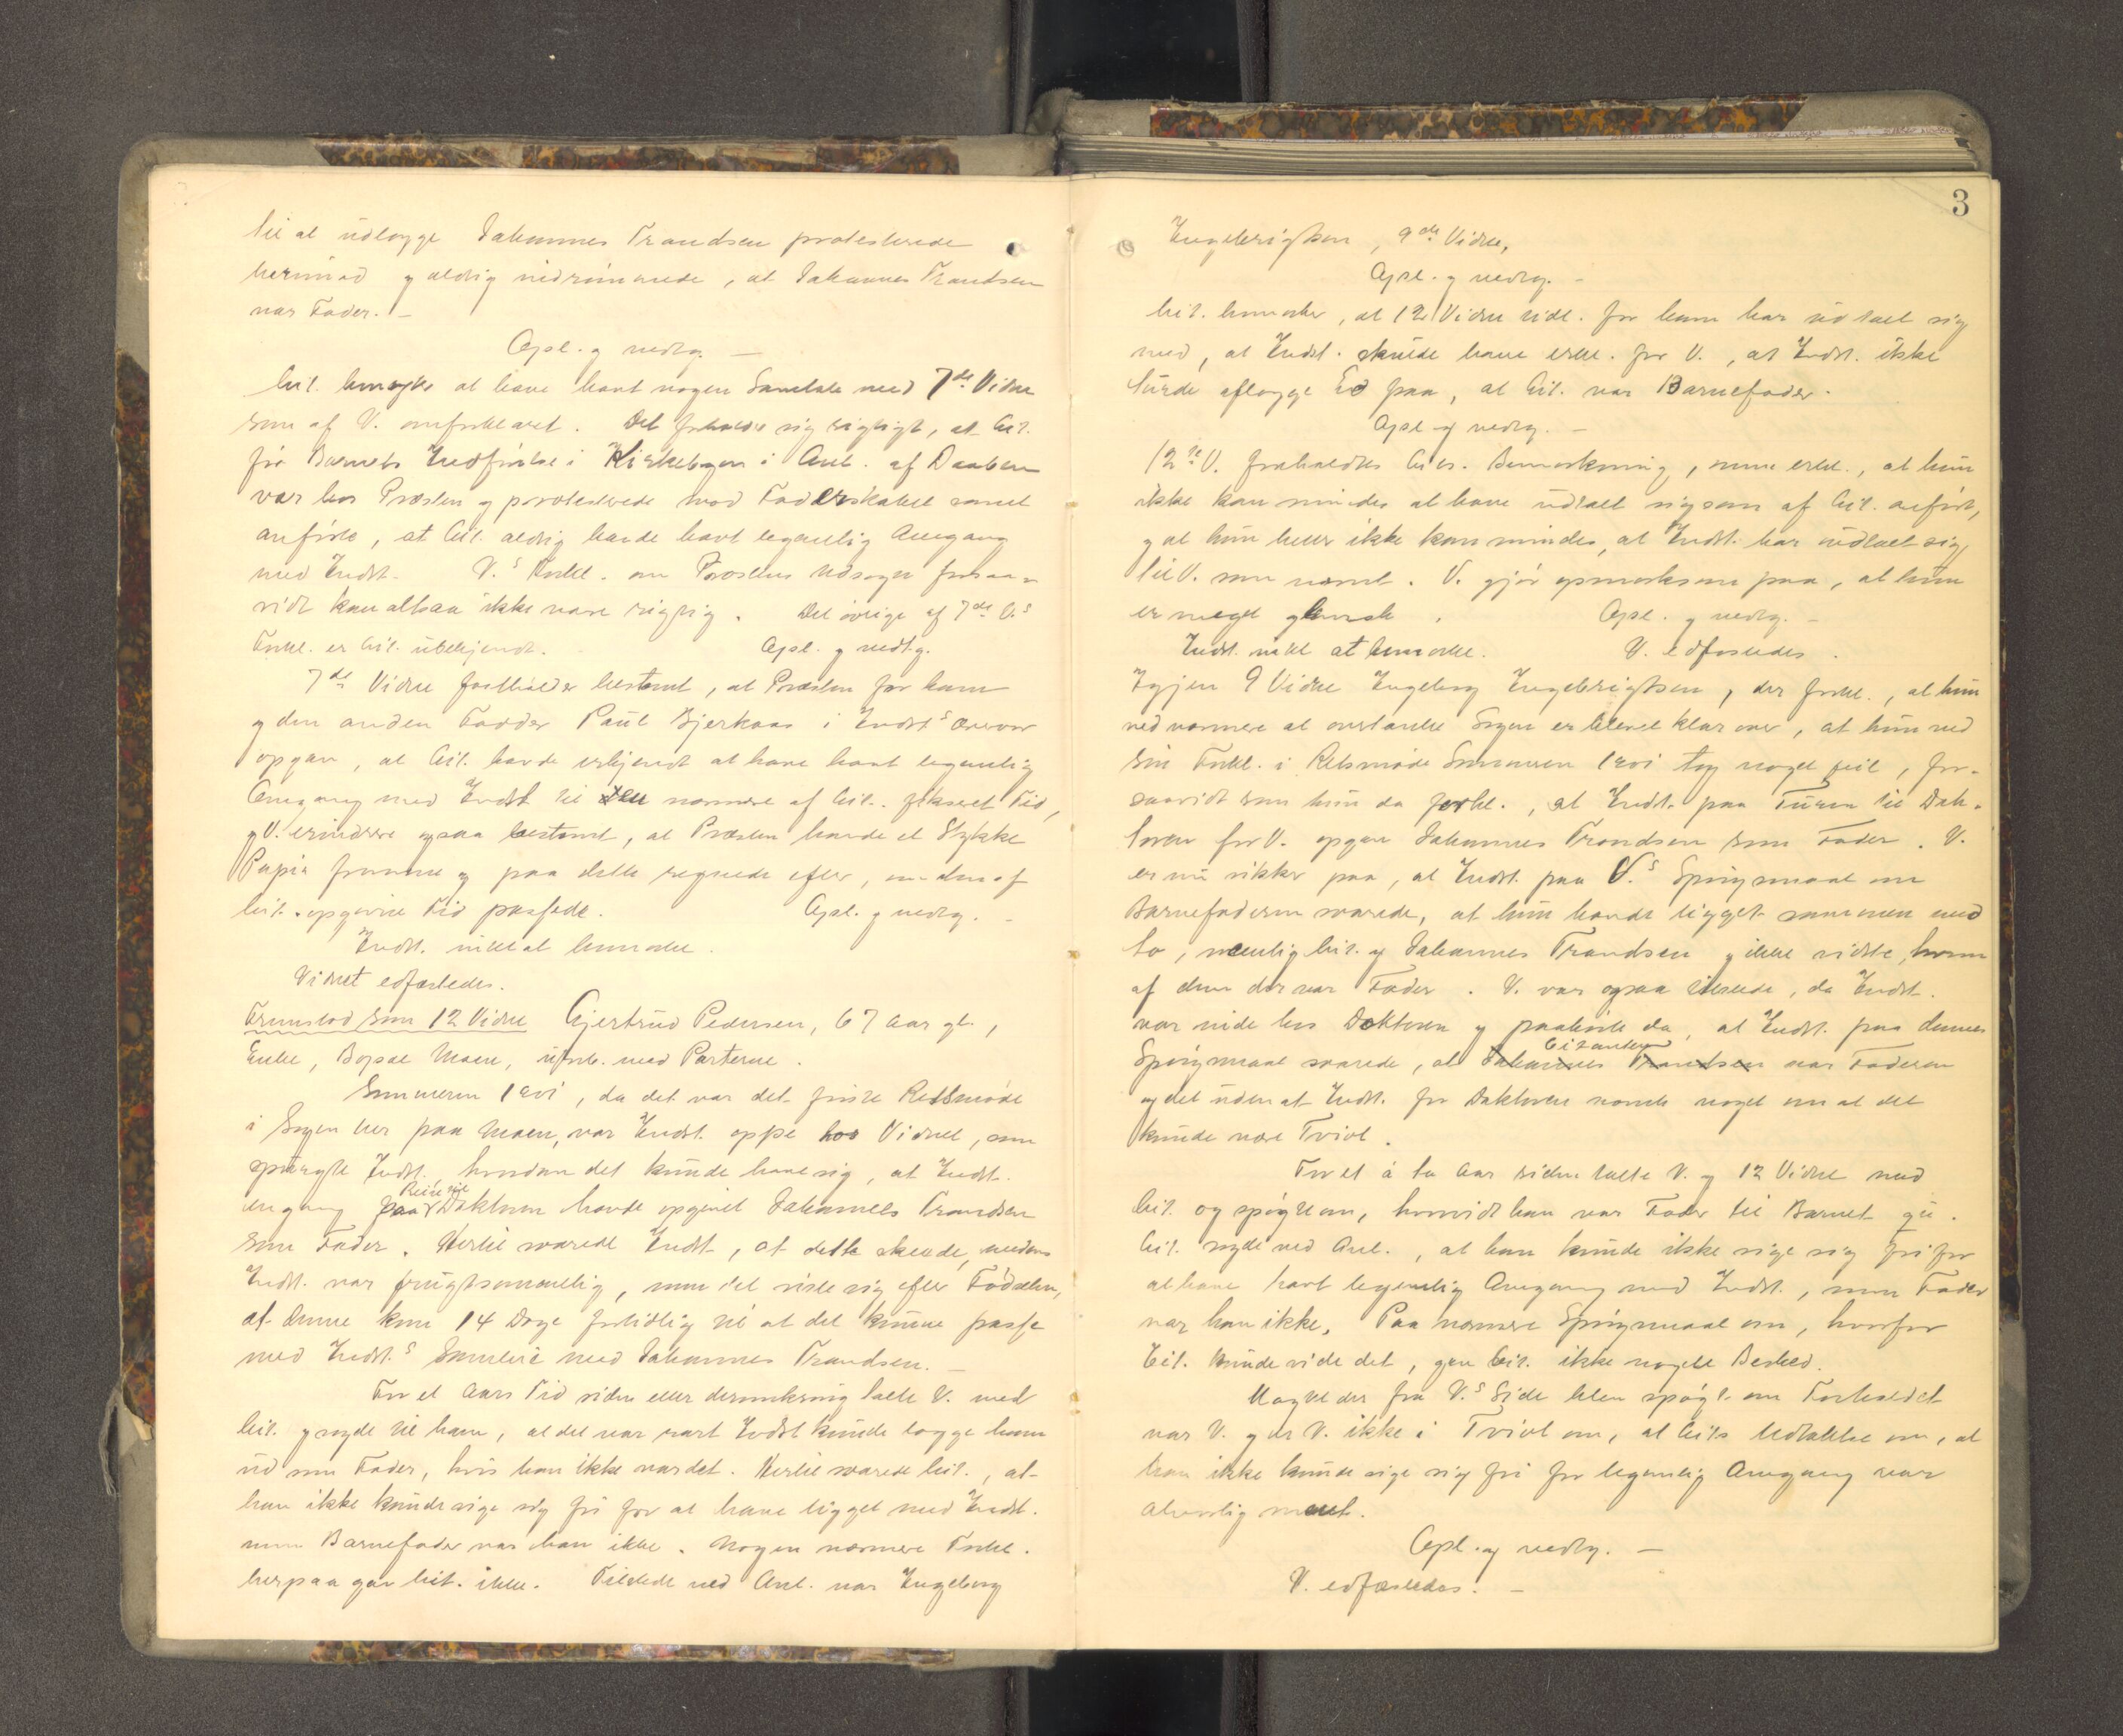 til at udlægge Johannes Trondsen protesterede
herimod og aldrig indrømmede, at Johannes Trondsen
var Fader. –
Opl. og vedtg. –
Cit. benægter at have havt nogen Samtale med 7de Vidne
som af V. omforklaret. Det forholder sig rigtigt, at Cit.
før Barnets Indførelse i Kirkebogen i Anl. af Daaben
var hos Præsten og protesterede mod Faderskabet samt
anførte, at Cit. aldrig havde havt legemlig Omgang
med Indst. V.s Forkl. om Præstens Udsagn forsaa-
vidt kan altsaa ikke være rigtig. Det øvrige af 7de V.s
Forkl. er Cit. ubekjendt. Opl. og vedtg.
7de Vidne fastholder bestemt, at Præsten for ham
og den anden Fadder Paul Bjerkaas i Indst.s Nærvær
opgav, at Cit. havde erkjendt at have havt legemlig
Omgang med Indst. til den nærmere af Cit. fikseret Tid,
og V. erindrer ogsaa bestemt, at Præsten havde et Stykke
Papir fremme og paa dette regnede efter, om den af
Cit. opgivne Tid passede. Opl. og vedtg. –
Indst. intet at bemærke.
Vidnet edfæstedes.
Fremstod som 12 Vidne Gjertrud Pedersen, 67 Aar gl.,
Enke, Bopæl Moen, ubesl. med Parterne.
Sommeren 1901, da det var det første Retsmøde
i Sagen her paa Moen, var Indst. oppe hos Vidnet, som
spurgte Indst. hvordan det kunde have sig, at Indst.
engang paa Reise til Doktoren havde opgivet Johannes Trondsen
som Fader. Hertil svarede Indst., at dette skede, medens
Indst. var frugtsommelig, men det viste sig efter Fødselen,
at denne kom 14 Dage fortidlig til at det kunne passe
med Indst.s Samleie med Johannes Trondsen. –
For et Aars Tid siden eller deromkring talte V. med
Cit. og sagde til ham, at det var rart Indst. kunde lægge ham
ud som Fader, hvis han ikke var det. Hertil svarede Cit., at
han ikke kunde sige sig fri for at have ligget med Indst.
men Barnefader var han ikke. Nogen nærmere Forkl.
herpaa gav Cit. ikke. Tilstede ved Anl. var Ingeborg
3
Engebrigtsen, 9de Vidne.
Opl. og vedtg. –
Cit. bemærker, at 12te Vidne vidt. for ham har udtalt sig
med, at Indst. skulde have erkl. for V., at Indst. ikke
turde aflægge Ed paa, at Cit. var Barnefader.
Opl. og vedtg. –
12te V. foreholdtes Cit.s Bemærkning, men erkl., at hun
ikke kan mindes at have udtalt sig som af Cit. anført,
og at hun heller ikke kan mindes, at Indst. har udtalt sig
til V. som nævnt. V. gjør opmærksom paa, at hun
er meget glemsk. Opl. og vedtg. –
Indst. intet at bemærke. V. edfæstedes.
Igjen 9 Vidne Ingeborg Engebrigtsen, der forkl., at hun
ved nærmere at overtænke Sagen er blevet klar over, at hun ved
sin Forkl. i Retsmøde Sommeren 1901 tog noget feil, for-
saavidt som hun da forkl., at Indst. paa Turen til Dok-
toren for V. opgav Johannes Trondsen som Fader. V.
er nu sikker paa, at Indst. paa V.s Spørgsmaal om
Barnefaderen svarede, at hun havde ligget sammen med
to, nemlig Cit. og Johannes Trondsen og ikke vidste, hvem
af dem der var Fader. V. var ogsaa tilstede, da Indst.
var inde hos Doktoren og paahørte da, at Indst. paa dennes
Spørgsmaal svarede, at Johannes Trondsen Citanten var Faderen
og det uden at Indst. for Doktoren nævnte noget om at det
kunde være Tvivl.
For et à to Aar siden talte V. og 12 Vidne med
Cit. og spøgte om, hvorvidt han var Fader til Barnet.
Cit. sagde ved Anl., at han kunde ikke sige sig fri for
at have havt legemlig Omgang med Indst., men Fader
var han ikke. Paa nærmere Spørgsmaal om, hvorfor
Cit. kunde vide det, gav Cit. ikke noget Besked.
Uagtet der fra V.s Side blev spøgt om Forholdet
var V. og er V. ikke i Tvivl om, at Cit.s Udtalelse om, at
han ikke kunde sige sig fri for legemlig Omgang var
alvorlig ment.
Opl. og vedtg. –
V. edfæstedes. –